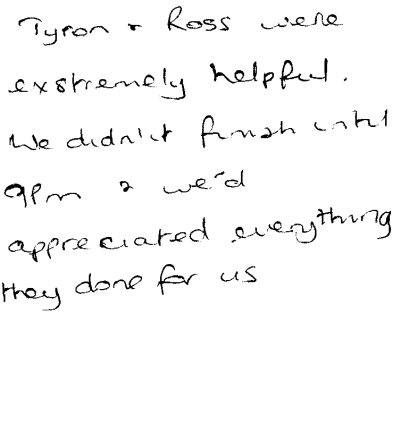 Tyron & Ross were
exstremely helpful.
We didn't finish until
9pm & we'd
appreciated everything
they done for us